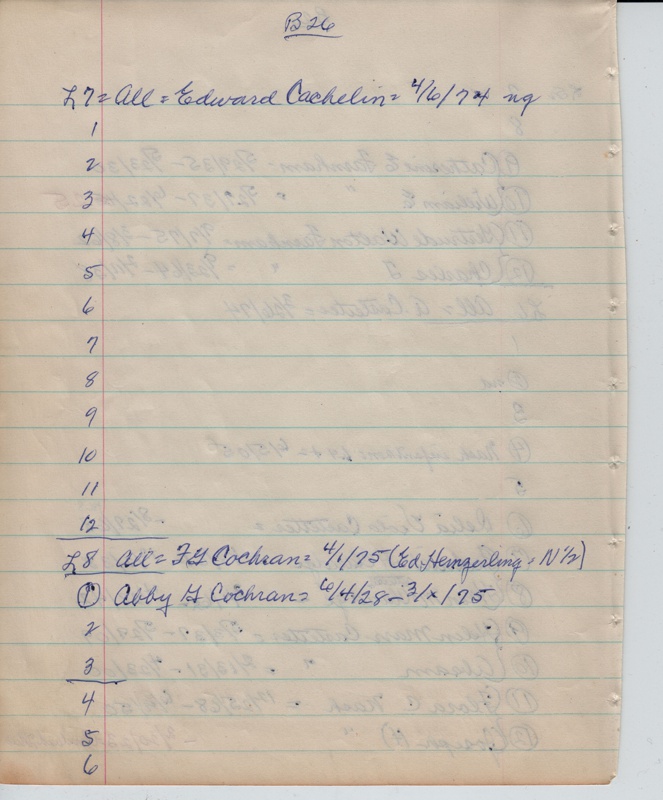 B26
L7 = All = Edward Cachelin = 4/6/74 ng
1
2
3
4
5
6
7
8
9
10
11
12
L8 All = F G Cochran = 4/1/75 (Ed. Hemgerling = N 1/2)
1 Abby G Cochran = 6/4/28 - 3/x/75
2
3
4
5
6